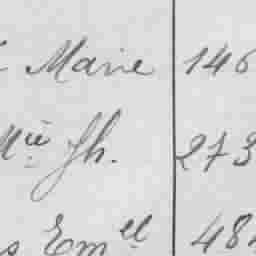 Marie 146
Mie Jh. 273
Emell 48